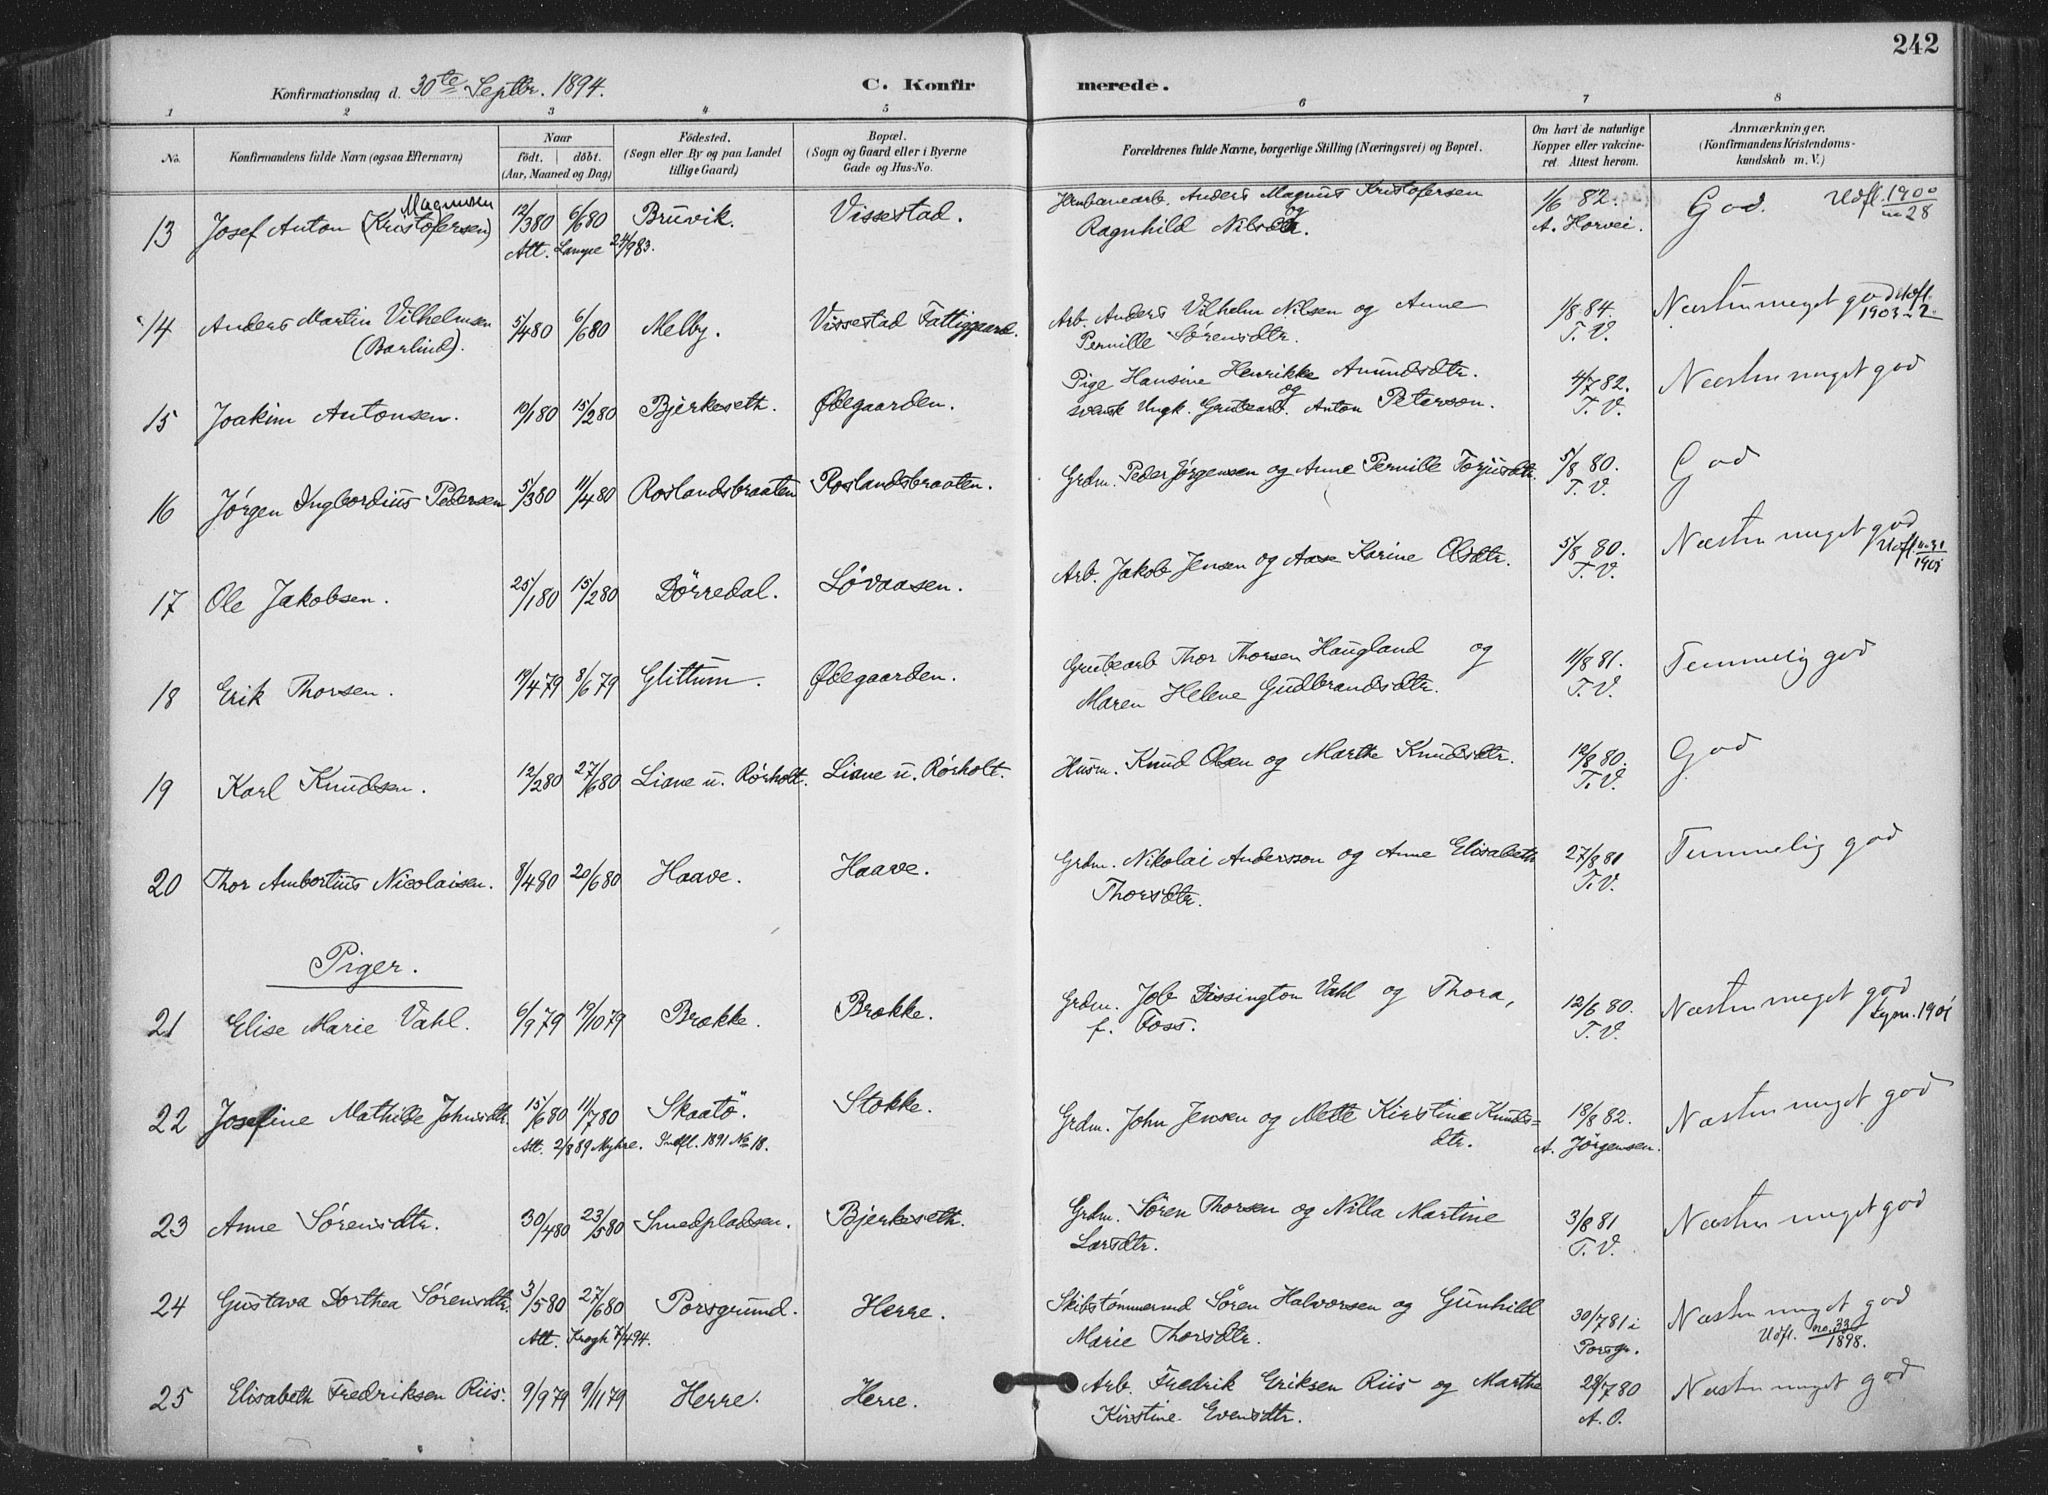 242
Konfirmationsdag d. 30te Septbr. 1894. C. Konfirmerede.
1 2 3 4 5 6 7 8
No. Konfirmandens fulde Navn (ogsaa Efternavn) Naar födt. döbt. (Aar, Maaned og Dag) Födested. (Sogn eller By og paa Landet tillige Gaard) Bopæl. (Sogn og Gaard eller i Byerne Gade og Hus-No. Forældrenes fulde Navne, borgerlige Stilling (Næringsvei) og Bopæl. Om havt de naturlige Kopper eller vaccineret. Attest herom. Anmærkninger. (Konfirmandens Kristendomskundskab m. V.)
13 Josef Anton (Kristofersen) Magnussen 12/3 80 6/6 80 Bruvik. Vissestad. Anders Magnus Kristofersen og 1/6 82. God. Udfl. 1900 no 28
Att. Lampe 24/9 83. Ragnhild Nilsdtr. A. Horvei.
14 Anders Martin Vilhelmsen 5/4 80 6/6 80 Melby. Vissestad Fattiggaard. Arb. Anders Vilhelm Nilsen og Anne 1/8 84. Næsten meget god Udfl. 1903
(Barlind). Pernille Sørensdtr. T. V.
15 Joakim Antonsen. 10/1 80 15/2 80 Bjerkeseth. Ødegaarden. Pige Hansine Henrikke Amundsdtr. og 4/7 82. Næsten meget god
svensk Ungk. Grubearb. Anton Peterson. T. V.
16 Jørgen Ingbordius Pedersen 5/3 80 11/4 80 Roslandsbraaten Roslandsbraaten. Grdm. Peder Jørgensen og Anne Pernille Torjusdtr. 5/8 80. T. V. God
17 Ole Jakobsen. 25/1 80 15/2 80 Dørredal. Løvaasen. Arb. Jakob Jensen og Aase Karine Olsdtr. 5/8 80. T. V. Næsten meget god
18 Erik Thorsen. 19/4 79 8/6 79 Glittum. Ødegaarden. Grubearb Thor Thorsen Haugland og 11/8 81. Temmelig god
Maren Helene Gudbrandsdtr. T. V.
19 Karl Knudsen. 12/2 80 27/6 80 Liane u. Rørholt. Liane u. Rørholt. Husm. Knud Olsen og Marthe Knudsdtr. 12/8 80. T. V. God
20 Thor Ambortius Nicolaisen. 8/4 80 20/6 80 Haave. Haave. Grdm. Nikolai Andersson og Anne Elisabeth 27/8 81 Temmelig god
Thorsdtr. T. V.
Piger.
21 Elise Marie Vahl. 6/9 79 19/10 79 Brække. Brække. Grdm. Job Dissington Vahl og Thora, 12/6 80. Næsten meget god
f. Foss. T. V.
22 Josefine Mathilde Johnsdtr. 15/6 80 11/7 80 Skaatö. Stokke. Grdm. John Jensen og Mette Kirstine Knuds= 18/8 82. Næsten meget god
Att. 2/8 89 Myhre. Indfl. 1891 No 18. dtr. A. Jørgensen.
23 Anne Sørensdtr. 30/4 80 23/5 80 Smedpladsen. Bjerkeseth. Grdm. Søren Thorsen og Nilla Martine 3/8 81 Næsten meget god
Larsdtr. T. V.
24 Gustava Dorthea Sørensdtr. 3/5 80 27/6 80 Porsgrund. Herre. Skibstømmermd Søren Halvorsen og Gunhild 30/7 81 i Næsten meget god
Att. Krogh 7/4 94. Marie Thorsdtr. Porsgr. Udfl. no. 33 1898.
25 Elisabeth Fredriksen Riis. 9/9 79 9/11 79 Herre. Herre. Arb. Fredrik Eriksen Riis og Marthe 28/7 80 Næsten meget god
Kirstine Evensdtr. A. O.